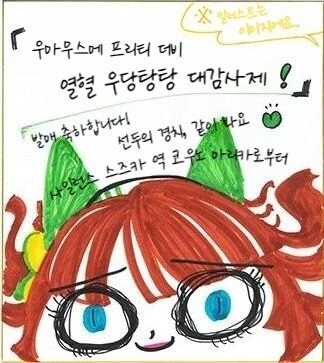 ※ 일러스트는
이미지예요.
『우마무스메 프리티 더비
열혈 우당탕탕 대감사제!』
발매 축하합니다!
선두의 경치, 같이 봐요
사일런스 스즈카 역 코우노 마리카로부터